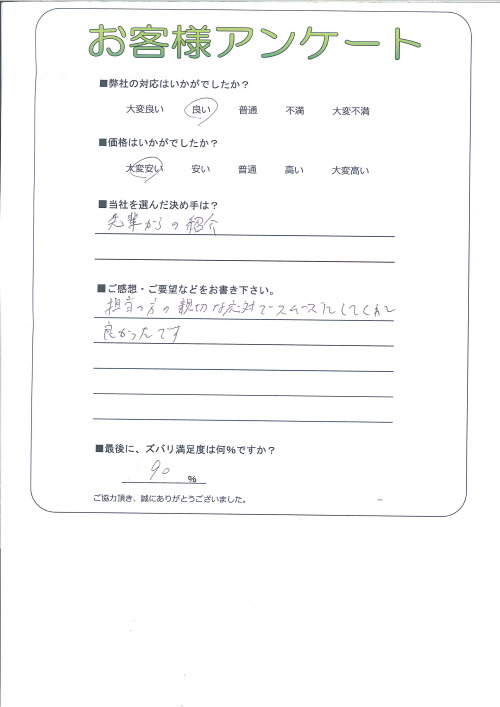 お客様アンケート
■弊社の対応はいかがでしたか？
大変良い 良い 普通 不満 大変不満
■価格はいかがでしたか？
大変安い 安い 普通 高い 大変高い
■当社を選んだ決め手は？
先輩からの紹介
■ご感想・ご要望などをお書き下さい。
担当の方の親切な応対でスムーズにしてくれて
良かったです
■最後に、ズバリ満足度は何%ですか？
90 %
ご協力頂き、誠にありがとうございました。